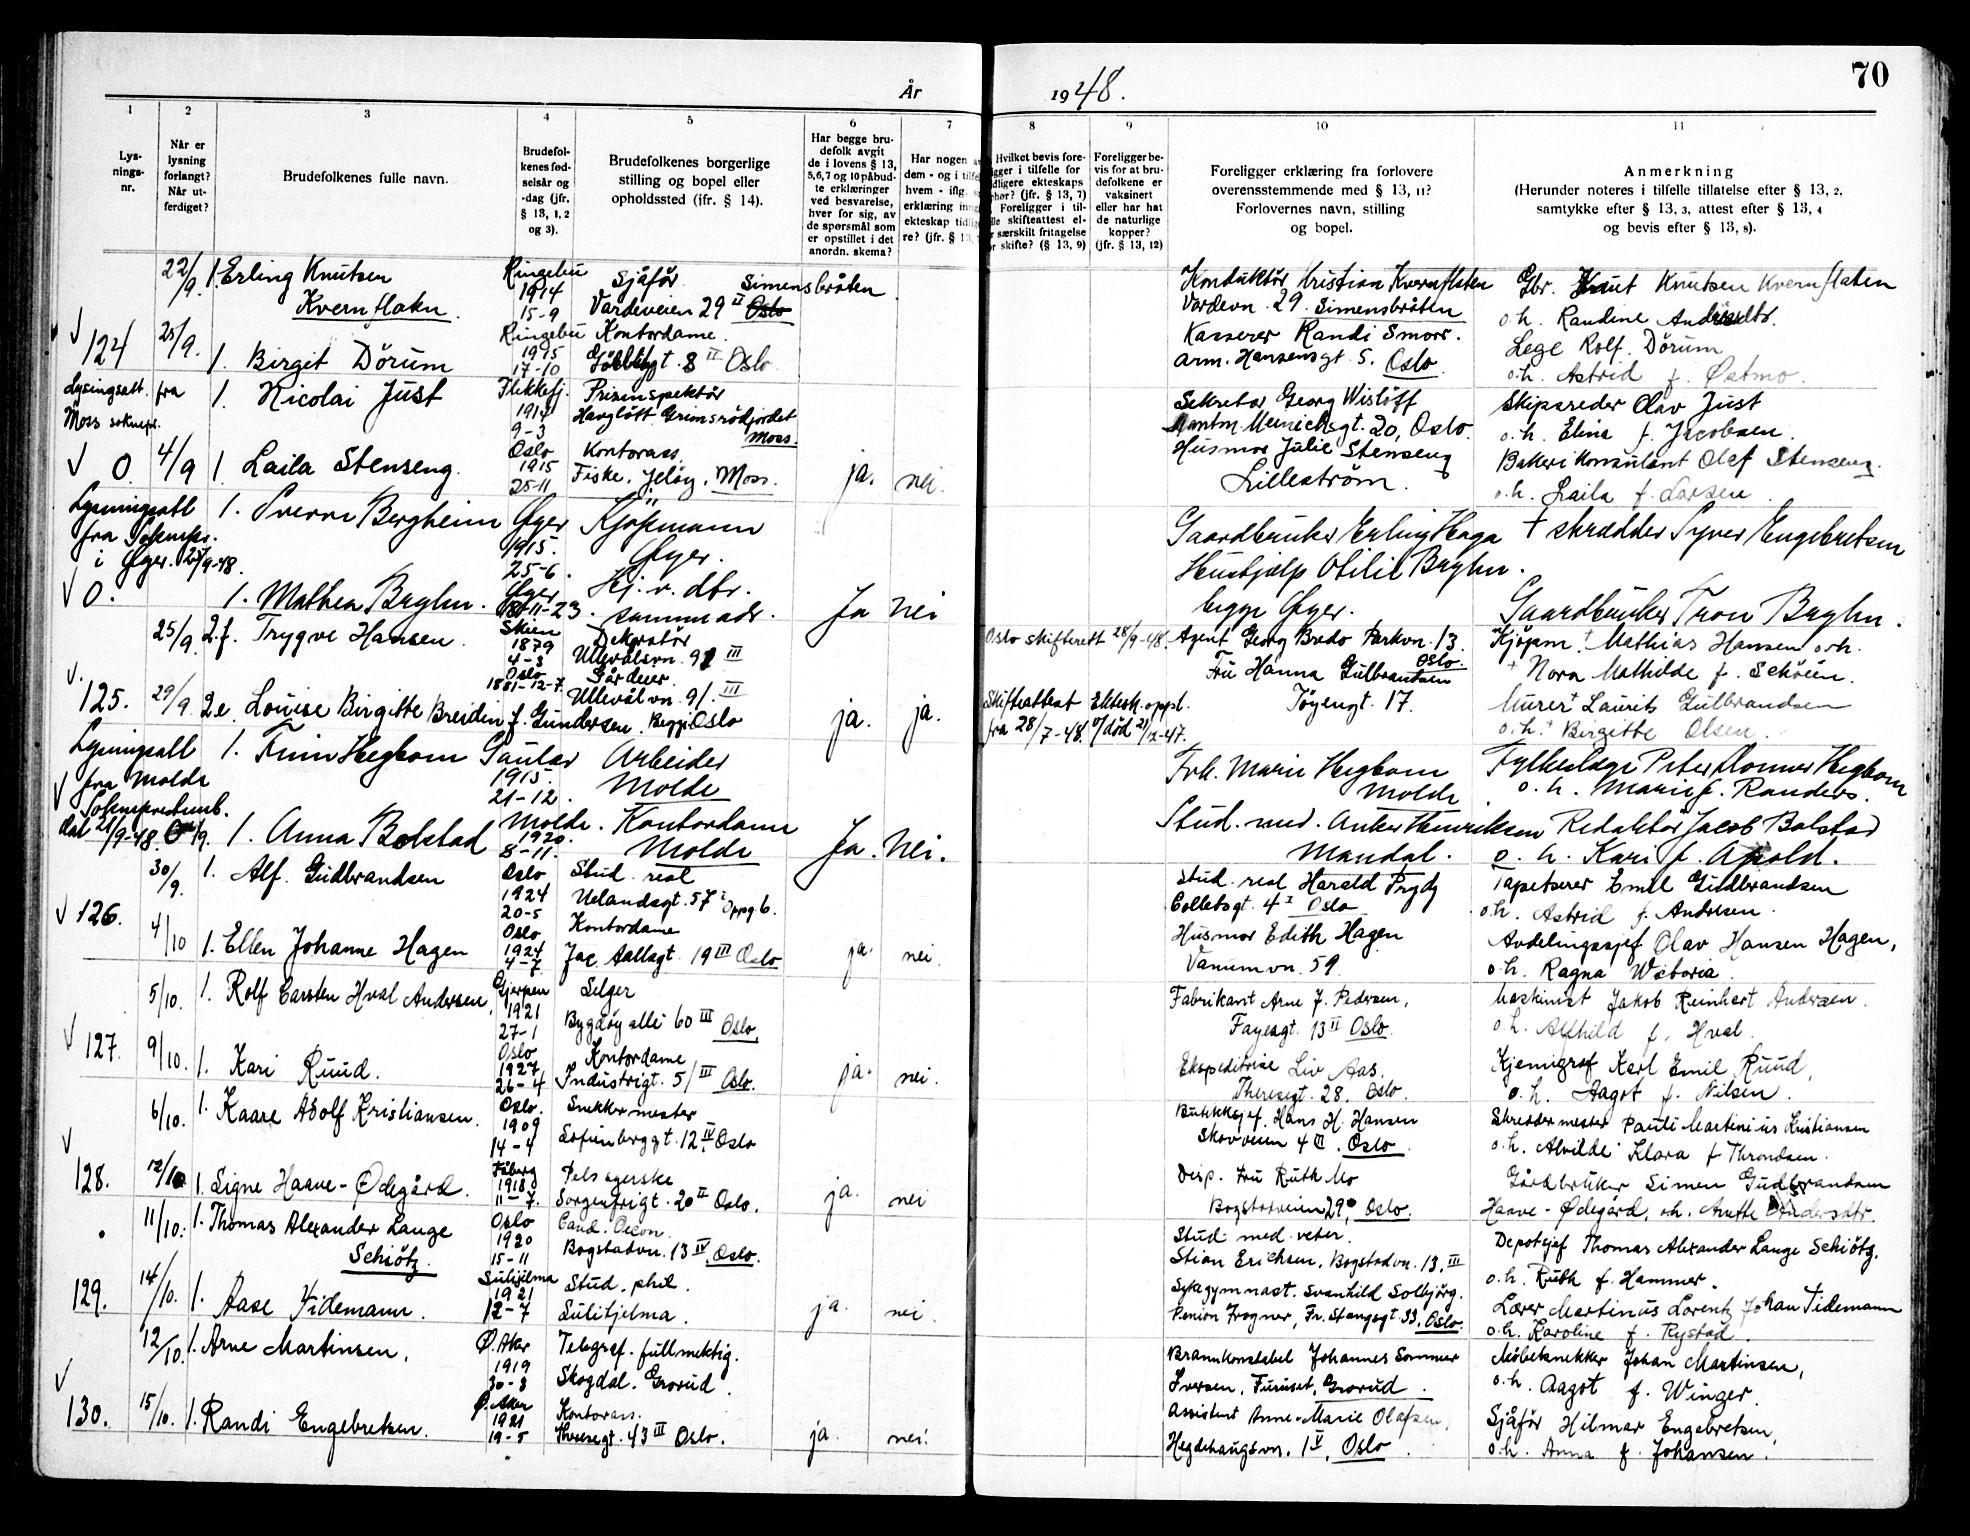 70
År 1948.
1
2
3
4
5
6
7
8
9
10
11
Lys-
nings-
nr.
Når er
lysning
forlangt?
Når ut-
ferdiget?
Brudefolkenes fulle navn.
Brudefol-
kenes fød-
selsår og
-dag (jfr.
§ 13, 1, 2
og 3).
Brudefolkenes borgerlige
stilling og bopel eller
opholdssted (jfr. § 14).
Har begge bru-
defolk avgit
de i lovens § 13,
5,6,7 og 10 påbud-
te erklæringer
ved besvarelse,
hver for sig, av
de spørsmål som
er opstillet i det
anordn. skema?
Har nogen
dem - og i
hvem - iflg.
erklæring
ekteskap
re? (jfr. § 13,
Hvilket bevis fore-
i tilfelle for
ekteskaps
(jfr. § 13, 7)
Foreligger i til-
skifteattest el-
særskilt fritagelse
skifte? (§ 13, 9)
Foreligger be-
vis for at bru-
defolkene er
vaksinert
eller har hat
de naturlige
kopper?
(jfr. § 13, 12)
Foreligger erklæring fra forlovere
overensstemmende med § 13, 11?
Forlovernes navn, stilling
og bopel.
Anmerkning
(Herunder noteres i tilfelle tillatelse efter § 13, 2.
samtykke efter § 13, 3, attest efter § 13, 4
og bevis efter § 13, 8).
22/9. 1. Erling Knutsen
Kvernflaten
Ringebu
1914
15-9
Sjåfør Simensbråten
Vardeveien 29 II Oslo
Konduktør Kristian Kvernflaten
Vardevn. 29. Simensbråten
Gbr. Knut Knutsen Kvernflaten
o.h. Randine
124 25/9. 1. Birgit Dörum
Ringebu
1915
17-10
Kontordame
8 II Oslo
Kasserer Randi Smors.
Arm. Hansensgt. 5. Oslo
Lege Rolf Dörum
o.h. Astrid f. Østmo.
Lysingsatt. fra
Moss soknepr.
1. Nicolai Just
Flekkefj.
1914
9-3
Prisinspektør
Havglött Grimsrödfjordet
Moss.
Sekretær Georg Wislöff
Meinichsgt. 20, Oslo
Skipsreder Olav Just
o.h. Elina f. Jacobsen
0. 4/9 1. Laila Stenseng.
Oslo
1915
25-11
Kontorass.
Fiske, Jelöy, Moss.
ja. nei.
Husmor Julie Stenseng
Lilleström.
Bakerikonsulent Olaf Stenseng.
o.h. Laila f. Larsen
Lysningsatt
fra Soknepr.
i Øyer. 25/9-48.
1. Sverre Bergheim
Øyer
1915.
25-6.
Kjöpmann
Øyer.
Gaardbruker Erling Haga
† skrædder Syver Engebretsen
0. 1. Mathea Bryhn.
Øyer
-11-23.
Hj. v. dtr.
samme adr.
Ja Nei
Hushjelp Otilie Bryhn.
begge Øyer.
Gaardbruker Tron Bryhn.
25/9 2.f. Trygve Hansen.
Skien
1879
4-3
Dekoratör
Ullevålsvn. 91 III
Oslo skifterett 28/9-48.
Agent Georg Bredo Parkvn. 13
Oslo.
Kjöpm. † Mathias Hansen o.h.
† Nora Mathilde f. Schöien.
125. 29/9 2.e. Louise Birgitte Breiden f. Gundersen.
Oslo
1881-12-7
Gårdeier
Ullevålvn 91. III
Begge Oslo
ja. ja.
Skifteattest
fra 28/7-48.
Ektesk. oppl.
v/död 21/12-47.
Fru Hanna Gulbrantsen
Töyengt. 17.
Murer † Laurits Gulbrandsen
o.h. † Birgitte Olsen.
Lysningsatt
fra Molde
1. Finn Hegbom
Gaular
1915.
21-12.
Arbeider
Molde
Frk. Marie Hegbom
Molde
Fylkeslege Peter Hegbom
o.h. Marie f. Randers.
dat 21/9-48.
1. Anna Bolstad
Molde.
1920.
8-11.
Kontordame
Molde
Ja. Nei.
Stud. med. Anker Henriksen
Mandal.
Redaktör Jacob Bolstad
o. h. Kari f. Apold.
30/9. 1. Alf Gudbrandsen
Oslo
1924
20-5
Stud. real
Uelandsgt. 57 I Oppg 6.
Stud. real Harald Prydz
Colletsgt. 4 I Oslo
Tapetserer Emil Gudbrandsen
o.h. Astrid f. Andresen.
126. 4/10 1. Ellen Johanne Hagen
Oslo
1924
4-7
Kontordame
Jac. Aallsgt. 19 III Oslo
ja. nei.
Husmor Edith Hagen
Vanumvn. 59.
Avdelingssjef Olav Hansen Hagen,
o.h. Ragna Wiboria.
5/10. 1. Rolf Carsten Hval Andersen,
Gjerpen
1921
27-1
Selger
Bygdöy allé 60 III Oslo.
Fabrikant Arne J. Pedersen,
Fayesgt. 13 II Oslo.
Maskinist Jakob Reinhart Andersen.
o.h. Alfhild f. Hval.
127. 9/10. 1. Kari Ruud.
Oslo
1927
26-4
Kontordame
Industrigt. 51 III Oslo.
ja. nei.
Ekspeditrise Liv Aas.
Theresegt. 28. Oslo.
Kjemigraf Karl Emil Ruud,
o.h. Aagot f. Nilsen.
6/10. 1. Kaare Adolf Kristiansen.
Oslo.
1909
14-4
Snekkermester
Sofienberggt. 12 IV Oslo
Butikksjef. Hans H. Hansen
Skovveien 4 III, Oslo.
Skreddermester Pauli Martinius Kristiansen
o.h. Alvilde Klara f. Throndsen.
128. 12/10 1. Signe Haave-Ødegård.
Fåberg
1918
11-7.
Pelssyerske
Sorgenfrigt. 20 II Oslo.
ja. nei
Disp. Fru Ruth Mo
Bogstadveien 29, Oslo.
Gårdbruker Simen Gudbrandsen
Haave-Ødegård, o.h. Anette Andersdtr.
11/10. 1. Thomas Alexander Lange
Schiötz.
Oslo
1920
15-11
Cand. Oecon.
Bogstadvn. 13 IV, Oslo.
Stud med. veter.
Stian Erichsen, Bogstadvn. 13. III
Depotsjef Thomas Alexander Lange Schiötz.
o.h. Ruth f. Hammer.
129. 14/10. 1. Aase Tidemann.
Sulitjelma
1921
12-7
Stud. phil.
Sulitjelma.
ja. nei.
Sykegymnast. Svanhild Solbjörg.
Pension Frogner, Fr. Stangsgt. 33, Oslo.
Lærer Martinus Lorentz Johan Tidemann
o.h. Karoline f. Rystad.
12/10. 1. Arne Martinsen,
Ø. Aker
1919
30-3
Telegraf. fullmektig.
Skogdal. Grorud.
Brannkonstabel Johannes Sommer
Iversen, Furuset, Grorud.
Møbelsnekker Johan Martinsen,
o.h. Aagot f. Winger.
130. 15/10. 1. Randi Engebretsen.
Ø. Aker
1921
19-5
Kontorass.
Theresegt. 43 III Oslo.
ja. nei.
Assistent Anne-Marie Olafsen,
Hegdehaugsvn. 1 V, Oslo.
Sjåför Hilmar Engebretsen,
o.h. Anna f. Johansen.